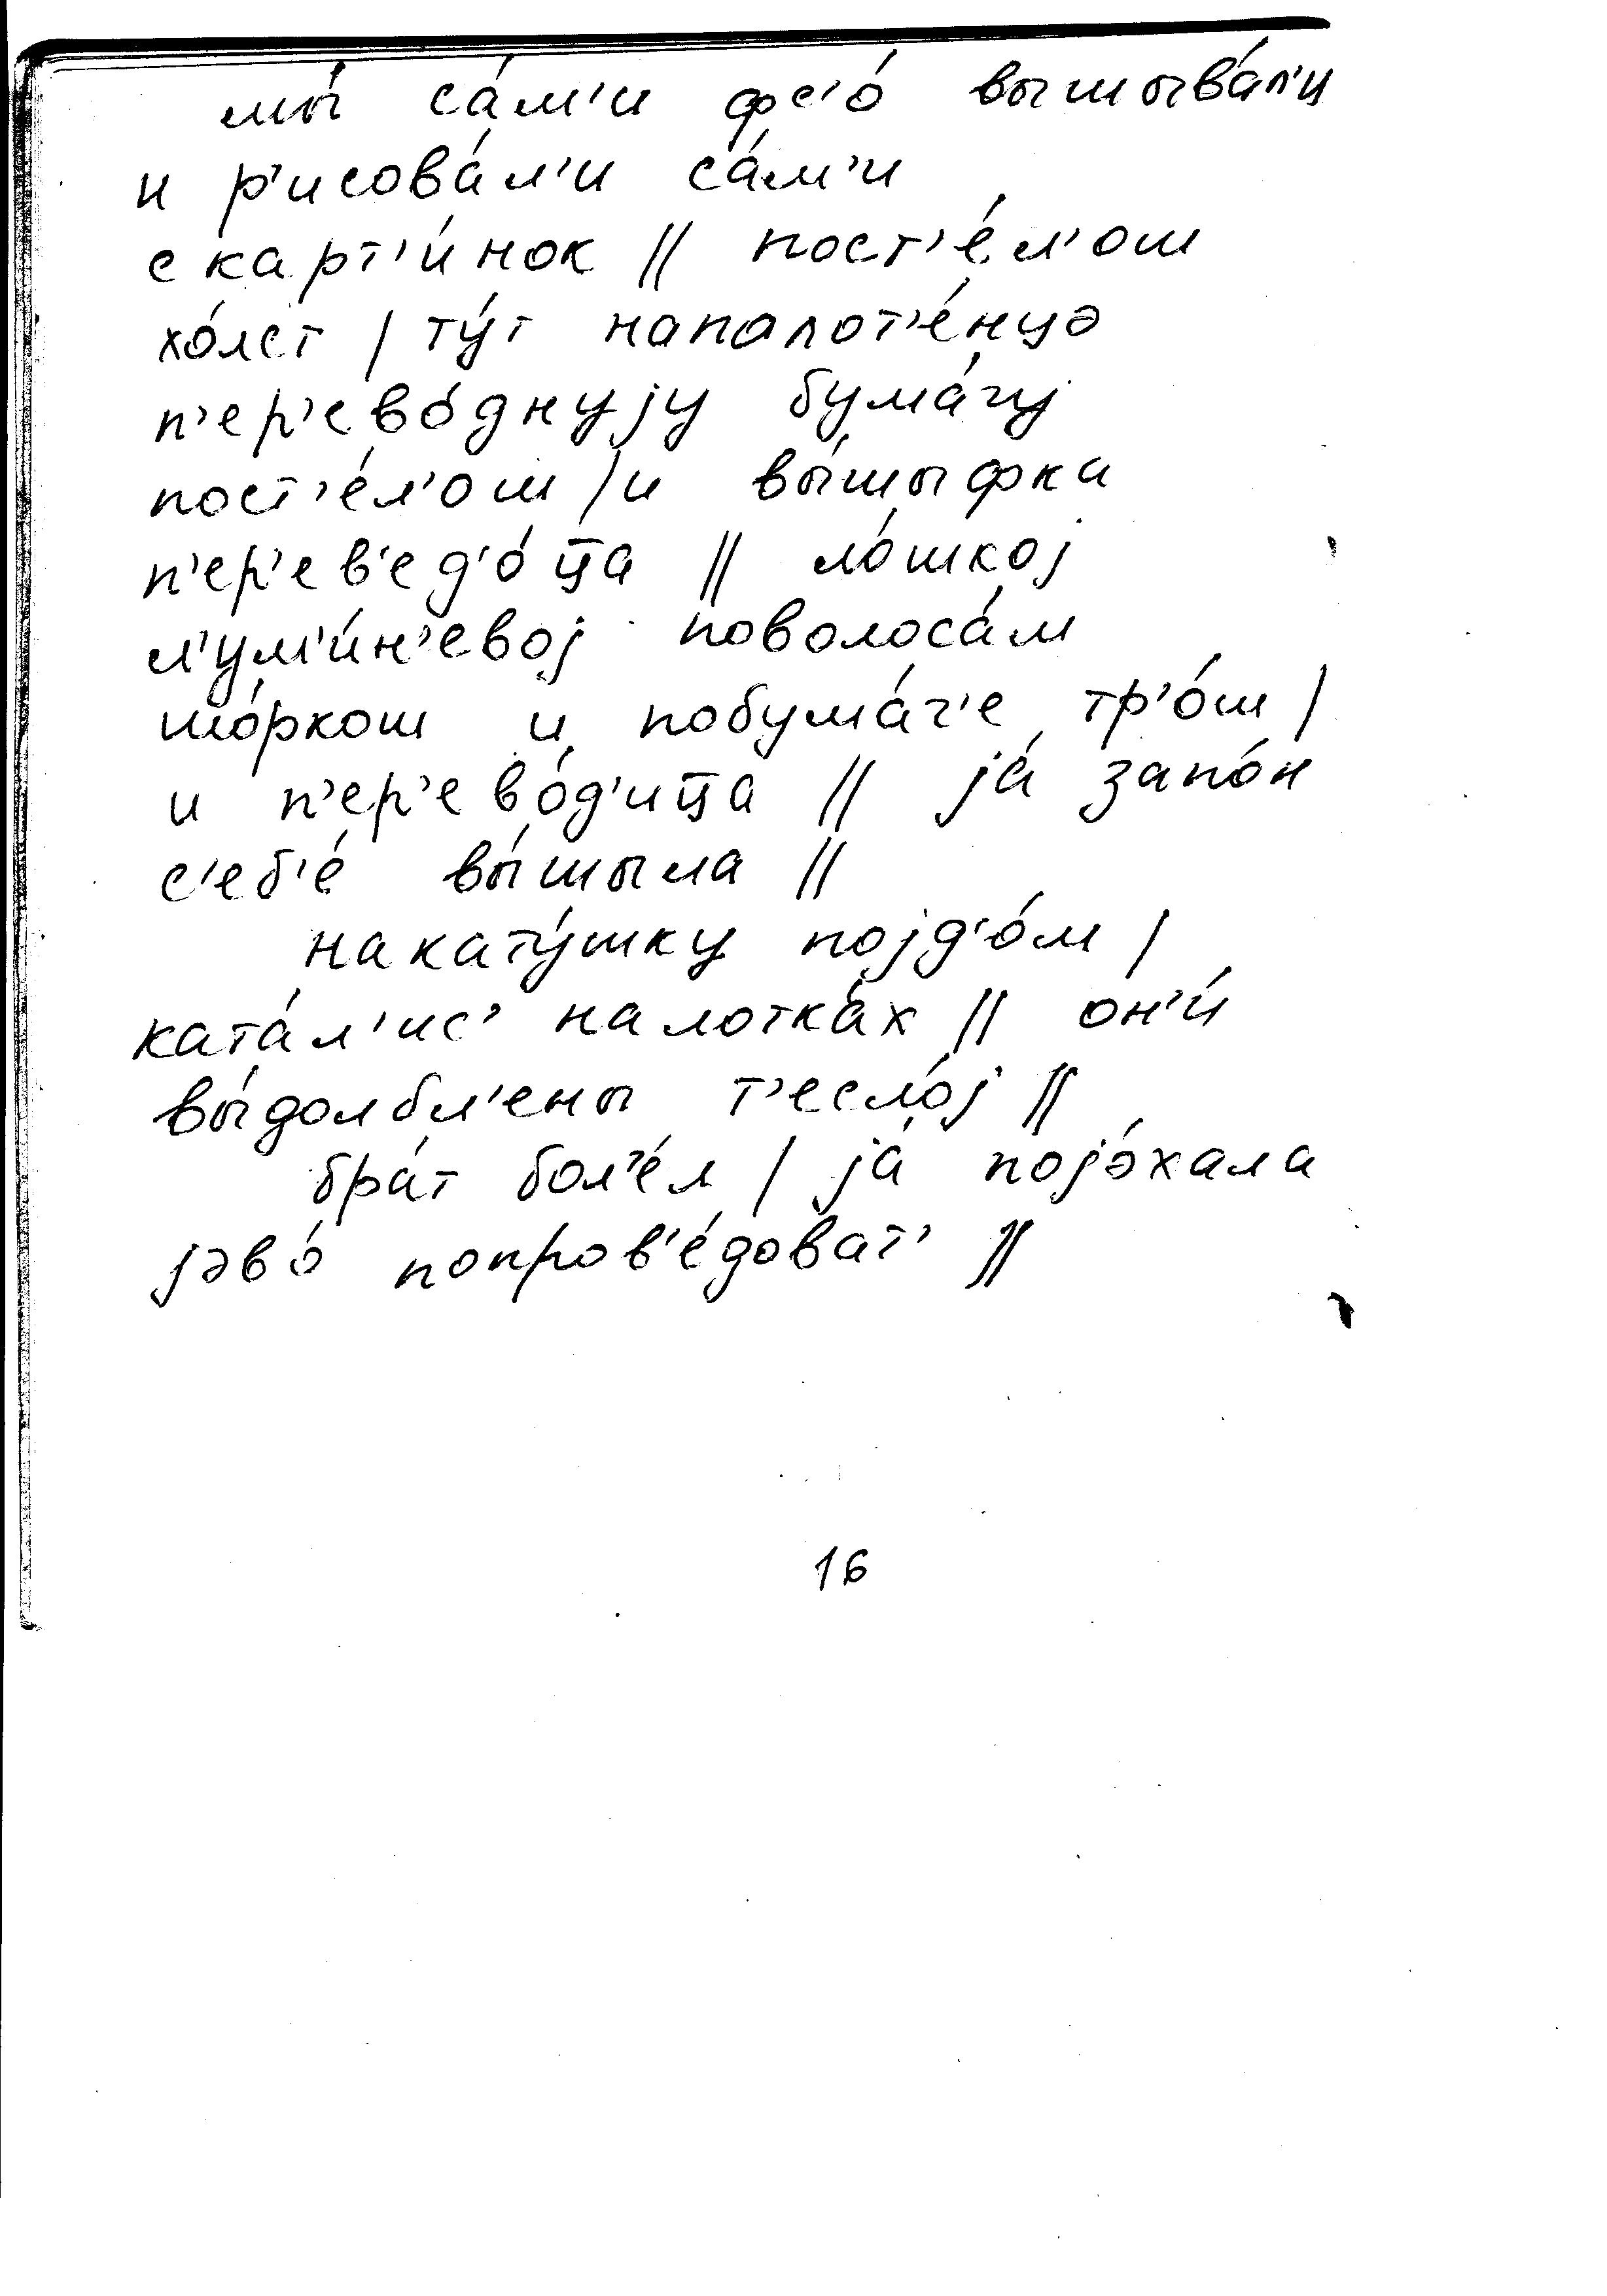 мы́ са́м'и фс'о́ вышыва́л'и
и р'исова́л'и са́м'и
с карт'и́нок || пост'е́л'ош
хо́лст | ту́т напалот'е́нцэ
п'ер'ево́днуjу бума́гу
пост'е́л'ош | и вы́шыфка
п'ер'ев'ед'о́ц̄а || ло́шкоj
л'ум'и́н'евоj поволоса́м
шо́ркош и побума́г'е тр'о́ш |
и п'ер'ево́д'иц̄а || jа́ запо́н
с'еб'е́ вы́шыла ||
накату́шку поjд'о́м |
ката́л'ис' налотка́х || он'и́
вы́долбл'ены т'есло́j ||
бра́т бол'е́л | jа́ поjэ́хала
jэво́ попров'е́доват' ||
16